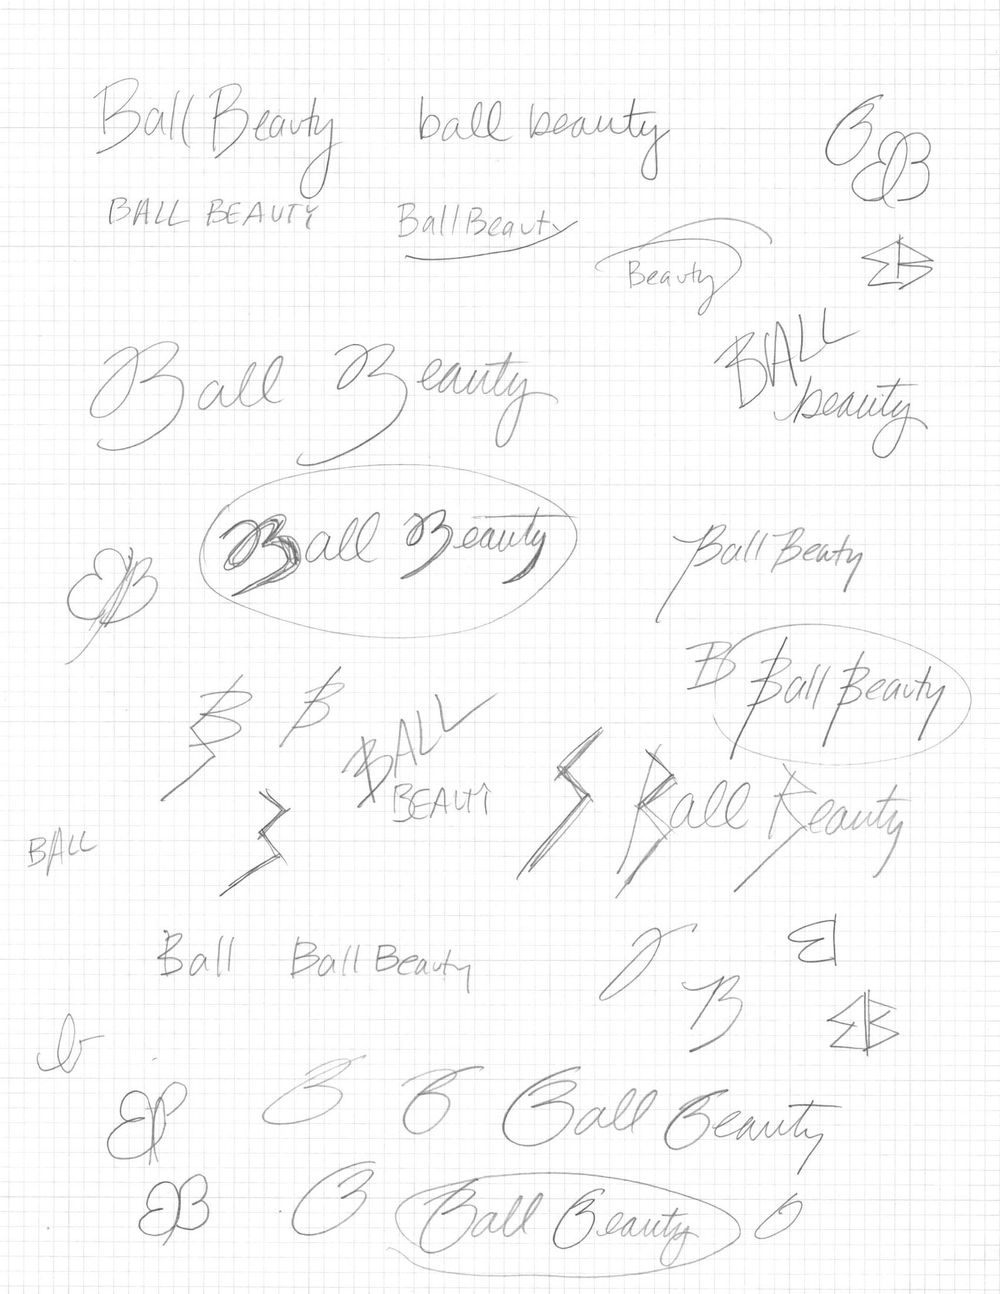 Ball Beauty
ball beauty
B
BB
BALL BEAUTY
BallBeauty
Beauty
BB
Ball Beauty
BALL
beauty
Ball Beauty
BB
Ball Beaty
B Ball Beauty
B
B
BALL
BEAUTY
Ball Beauty
BALL
Ball
Ball Beauty
B
B
BB
b
B
B
Ball Beauty
BB
B
Ball Beauty